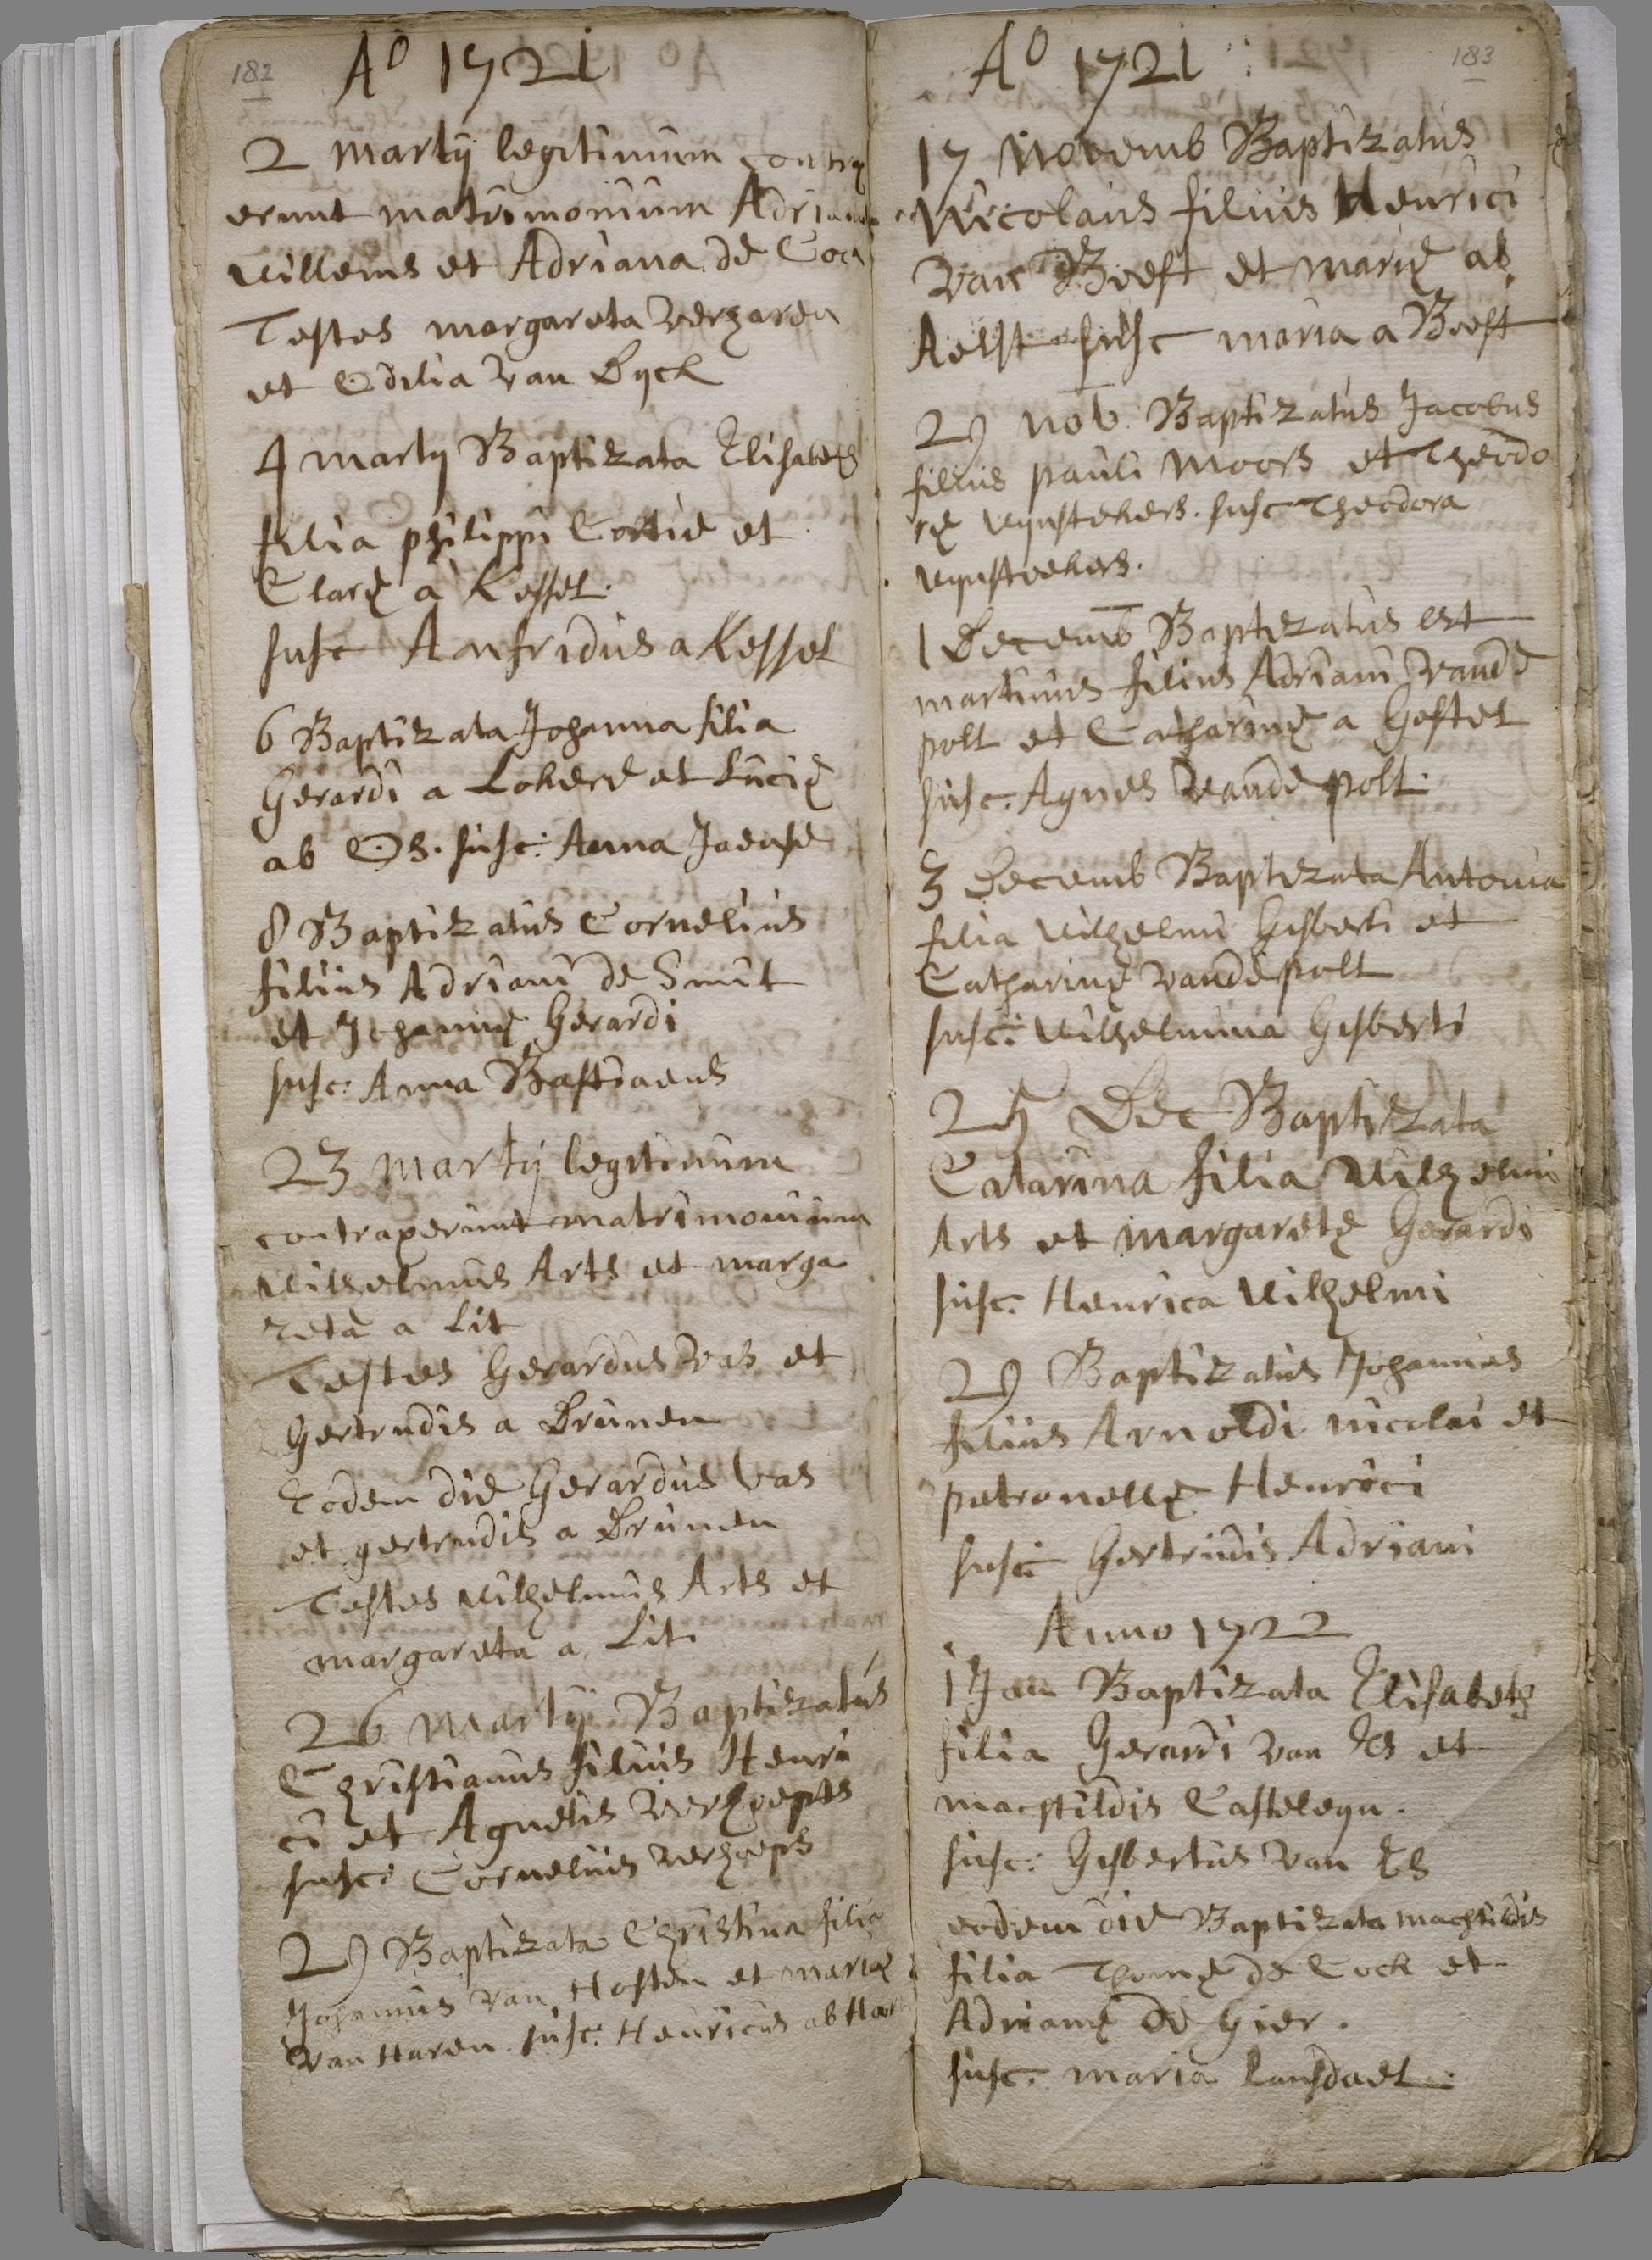 182
A⁰ 1721
2 Martij legitimum contrax
erunt matrimonium Adrianus
Willems et Adriana de Cock
Testes Margareta Verharen
et Odilia van Dyck
4 Martij Baptizata Elisabeth
filia Philippi Cortie et
Claræ a Kessel.
susc Anfridus a Kessel
6 Baptizata Johanna filia
Gerardi a Lokere et Luciæ
ab Os. susc: Anna Jaense
8 Baptizatus Cornelius
filius Adriani de Smit
et Johannæ Gerardi
susc: Anna Bastiaens
23 Martij legitimum
contraxerunt matrimonium
Wilhelmus Arts et Marga
reta a Lit
Testes Gerardus Vas et
Gertrudis a Drunen
Eodem die Gerardus Vas
et gertrudis a Drunen
Testes Wilhelmus Arts et
Margareta a Lit
26 Martij Baptizatus
Christianus filius Henri
ci et Agnetis Verhoeps
susc: Cornelius Verhoeps
29 Baptizata Christina filia
Johannis van Hosten et Mariæ
van Haren. susc: Henricus ab
183
A⁰ 1721
17 Novemb Baptizatus
Nicolaus filius Henrici
van Beest et Mariæ ab
Aelst susc Maria a Beest
29 Nov. Baptizatus Jacobus
filius Pauli Moors et Theodo
ræ Wynstekers. susc Theodora
Wynstekers.
1 Decemb Baptizatus est
Martinus filius Adriani vande
polt et Catharinæ a Gestel
susc. Agnes vande polt.
3 Decemb Baptizata Antonia
filia Wilhelmi Gisberti et
Catharinæ vande polt
susc: Wilhelmina Gisberti
25 Dec Baptizata
Catarina filia Wilhelmi
Arts et Margaretæ Gerardi
susc. Henrica Wilhelmi
29 Baptizatus Johannes
filius Arnoldi Nicolai et
Petronellæ Henrici
susc Gertrudis Adriani
Anno 1722
1 Jan Baptizata Elisabeth
filia Gerardi van Es et
Machtildis Casteleyn.
susc: Gisbertus van Es
eodem die Baptizata Machtildis
filia Thomæ de Cock et
Adrianæ de Gier.
susc. Maria Lansdaet.